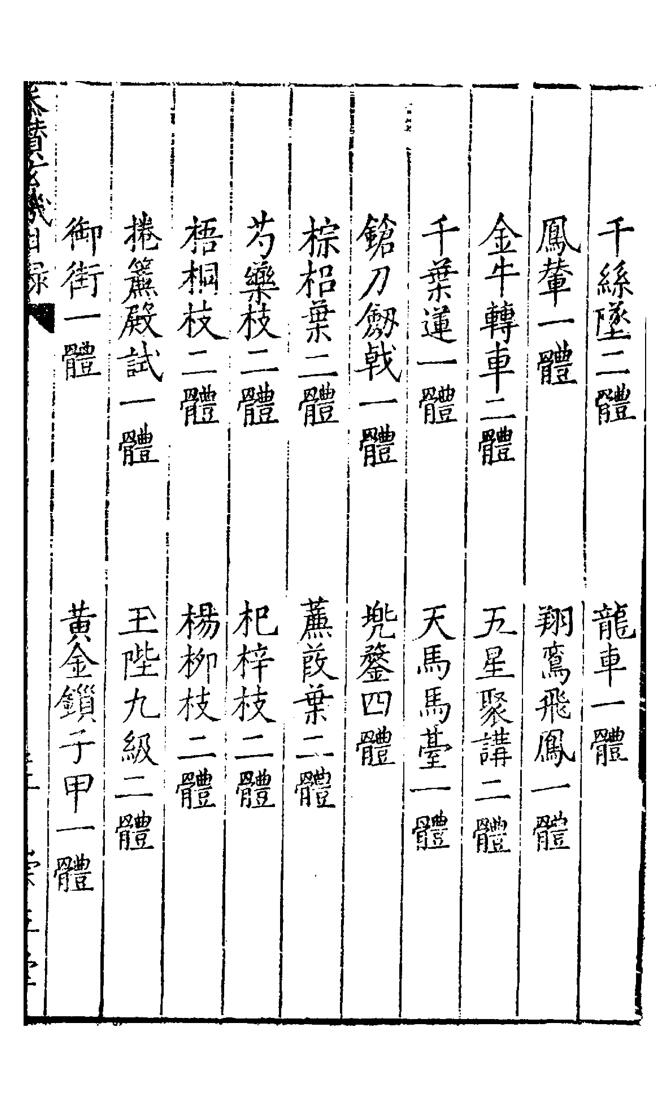 千絲墜二體　龍車一體
鳳輦一體　翔鸞飛鳳一體
金牛轉車二體　五星聚講二體
千葉蓮一體　天馬馬臺一體
鎗刀劔戟一體　兠鍪四體
棕梠葉二體　蕉葭葉二體
芍藥枝二體　杞梓枝二體
梧桐枝二體　楊栁枝二體
捲簾殿試一體　王陛九級二體
御街一體　黃金鎖子甲一體
叅贊玄機目録